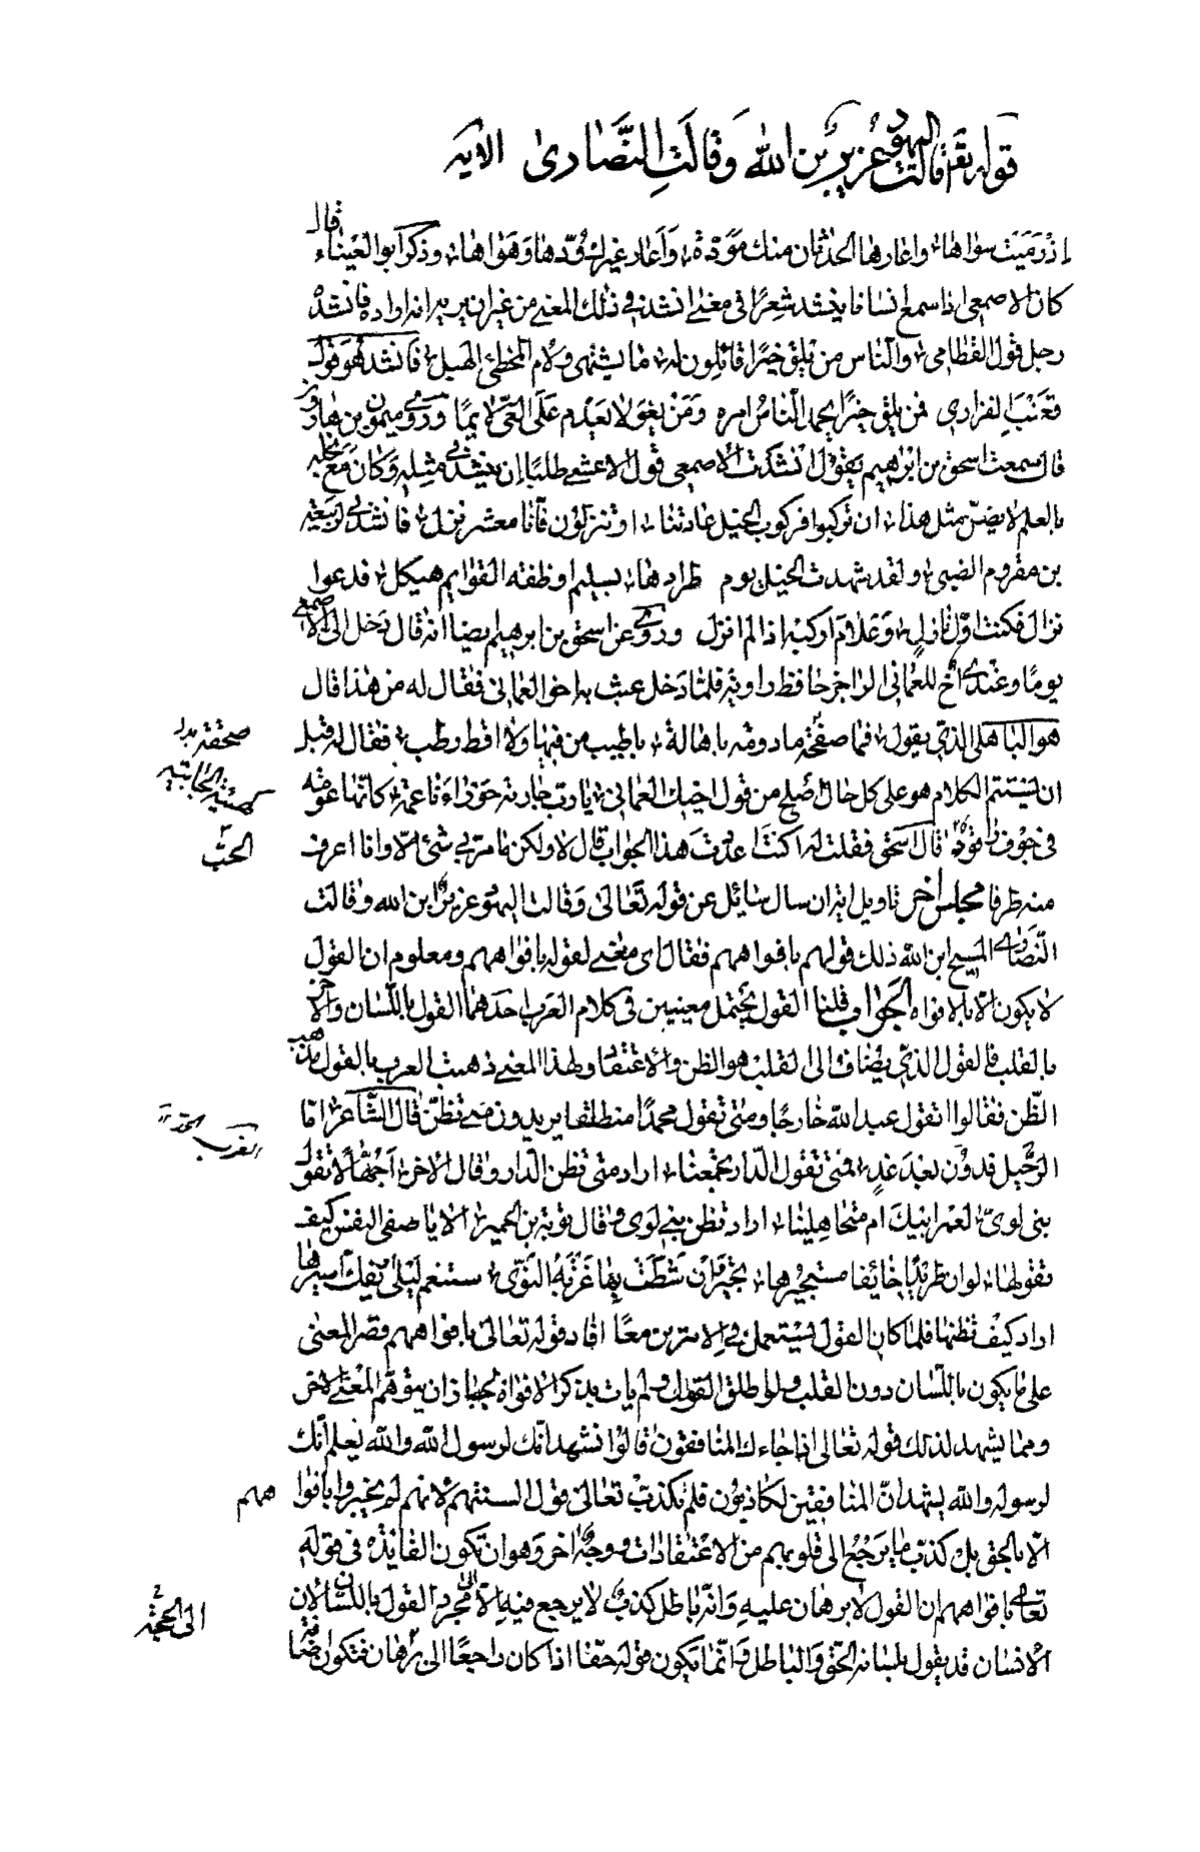 قوله تع قالت اليهود عزير بن الله وقالت النصارى الاية
اذ رميت سواها واعارها الحدثان منك مودة واعار غيرك ودها وهواها وذكر ابو العيناء قال
كان الاصمعي اذا سمع انسانا ينشد شعرا في معنى انشد في ذلك المعنى من غير ان يريه انه اراده فانشده
رجل قول القطامي والناس من يلق خيرا قائلون له ما يشتهي ولام المخطئ الهبل فانشد هو قول
قعنب الفزاري فمن يلق خيرا يحمد الناس امره ومن يغو لا يعدم على الغي لائما وروى ميمون بن هارون
قال سمعت اسحق بن ابرهيم يقول انشدت الاصمعي قول الاعشى طلبا ان ينشدني مثله وكان مع بخله
بالعلم لا يضن بمثل هذا ان تركبوا فركوب الخيل عادتنا او تنزلون فانا معشر نزل فانشدني لربيعة
بن مقروم الضبي ولقد شهدت الخيل يوم طرادها بسليم اوظفة القوايم هيكل فدعوا
نزال فكنت اول نازل وعلام اركبه اذا لم انزل وروى عن اسحق بن ابرهيم ايضا انه قال دخل الى الاصمعي
يوما وعنده اخ للعماني الراجز حافظ راوية فلما دخل عبث به اخو العماني فقال له من هذا قال
هو الباهلي الذي يقول فما صفحة مادومة باهالة باطيب من فيها ولا اقط رطب فقال له قبل
ان يستتم الكلام هو على كل حال اصلح من قول اخيك العماني يا رب جارية حوراء ناعمة كانها عومة
في جوف راقود قال اسحق فقلت له اكنت اعددت هذا الجواب قال لا ولكن ما مر بي شئ الا وانا اعرف
منه طرفا مجلس اخر تاويل اية ان سال سائل عن قوله تعالى وقالت اليهود عزير ابن الله وقالت
النصارى المسيح ابن الله ذلك قولهم بافواههم فقال اى معنى لقوله بافواههم ومعلوم ان القول
لا يكون الا بالافواه الجواب قلنا القول يحتمل معنيين في كلام العرب احدهما القول باللسان والاخر
بالقلب فالقول الذي يضاف الى القلب هو الظن والاعتقاد ولهذا المعنى ذهبت العرب بالقول مذهب
الظن فقالوا اتقول عبد الله خارجا ومتى تقول محمدا منطلقا يريدون متى تظن قال الشاعر اما
الرحيل فدون بعد غد فمتى تقول الدار تجمعنا اراد متى تظن الدار وقال الاخر اجهالا تقول
بنى لوى لعمر ابيك ام متجاهلينا اراد تظن بنى لوى وقال توبة بن الحمير الا يا صفى النفس كيف
تقولها لو ان طريدا خائفا مستجيرها يخبر ان شطت بها غربة النوى ستنعم ليلى او يفك اسيرها
اراد كيف تظنها فلما كان القول يستعمل في الامرين معا افاد قوله تعالى بافواههم قصر المعنى
على ما يكون باللسان دون القلب ولو اطلق القول ولم يات بذكر الافواه لجاز ان يتوهم المعنى الاخر
ومما يشهد لذلك قوله تعالى اذا جاءك المنافقون قالوا نشهد انك لرسول الله والله يعلم انك
لرسوله والله يشهد ان المنافقين لكاذبون فلم يكذب تعالى قول السنتهم لانهم لم يخبروا بافواههم
الا بالحق بل كذب ما يرجع الى قلوبهم من الاعتقادات ووجه اخر وهو ان تكون الفائدة في قوله
تعالى بافواههم ان القول لا برهان عليه وانه باطل كذب لا يرجع فيه الا الى مجرد القول باللسان لان
الانسان قد يقول بلسانه الحق والباطل وانما يكون قوله حقا اذا كان راجعا الى برهان فتكون اضافة
الحب